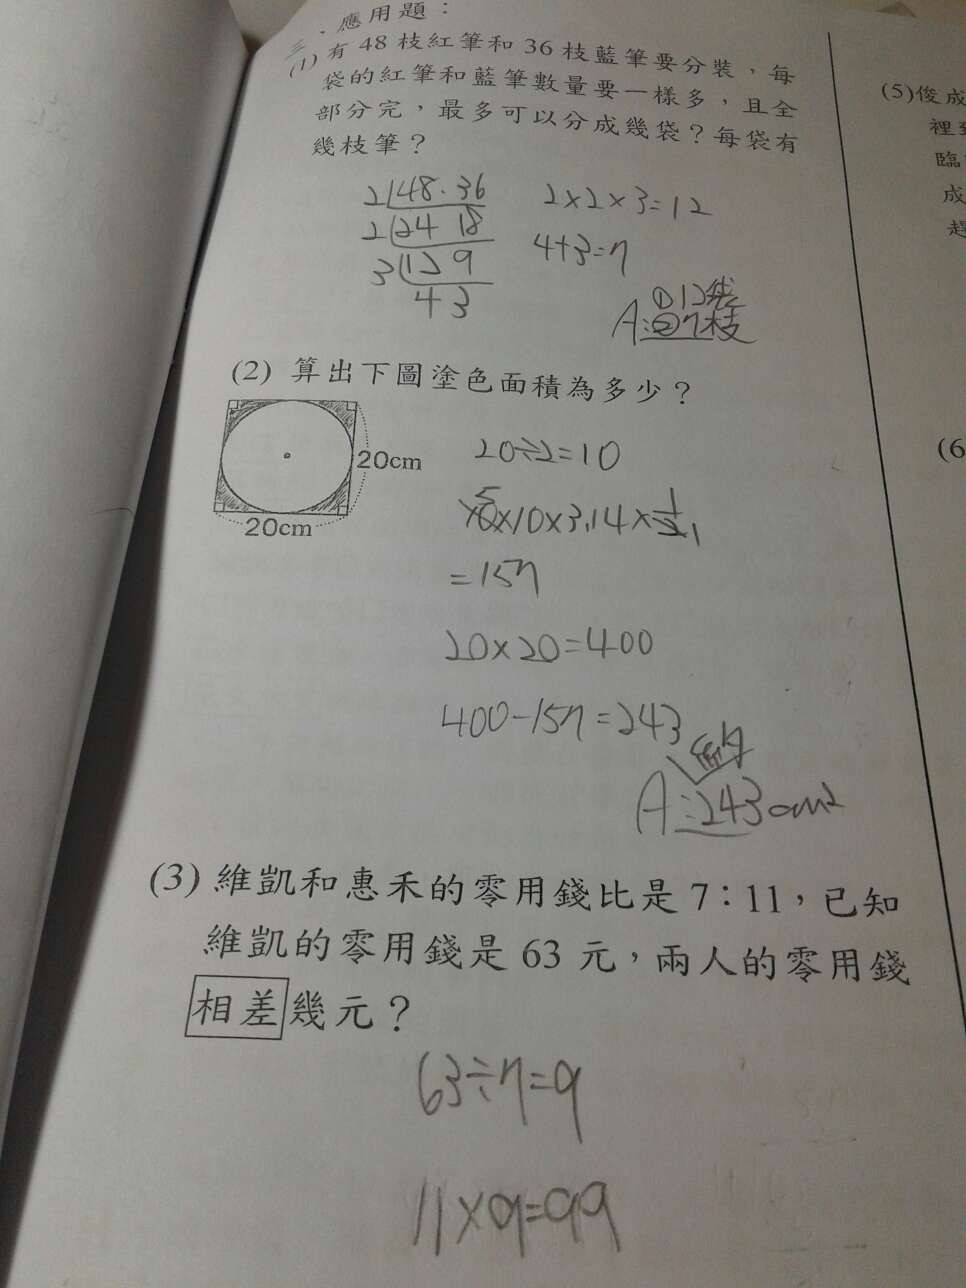 三．應用題：
(1) 有 48 枝紅筆和 36 枝藍筆要分裝，每
袋的紅筆和藍筆數量要一樣多，且全
部分完，最多可以分成幾袋？每袋有
幾枝筆？
2 48．36
2 24 18
3 12 9
4 3
2×2×3=12
4+3=7
①12袋
A：②7枝
(2) 算出下圖塗色面積為多少？
20cm
20cm
20÷2=10
=157
20×20=400
400-157=243
A：243cm²
(3) 維凱和惠禾的零用錢比是 7：11，已知
維凱的零用錢是 63 元，兩人的零用錢
相差幾元？
63÷7=9
11×9=99
(5)俊成
裡
臨
成
(6